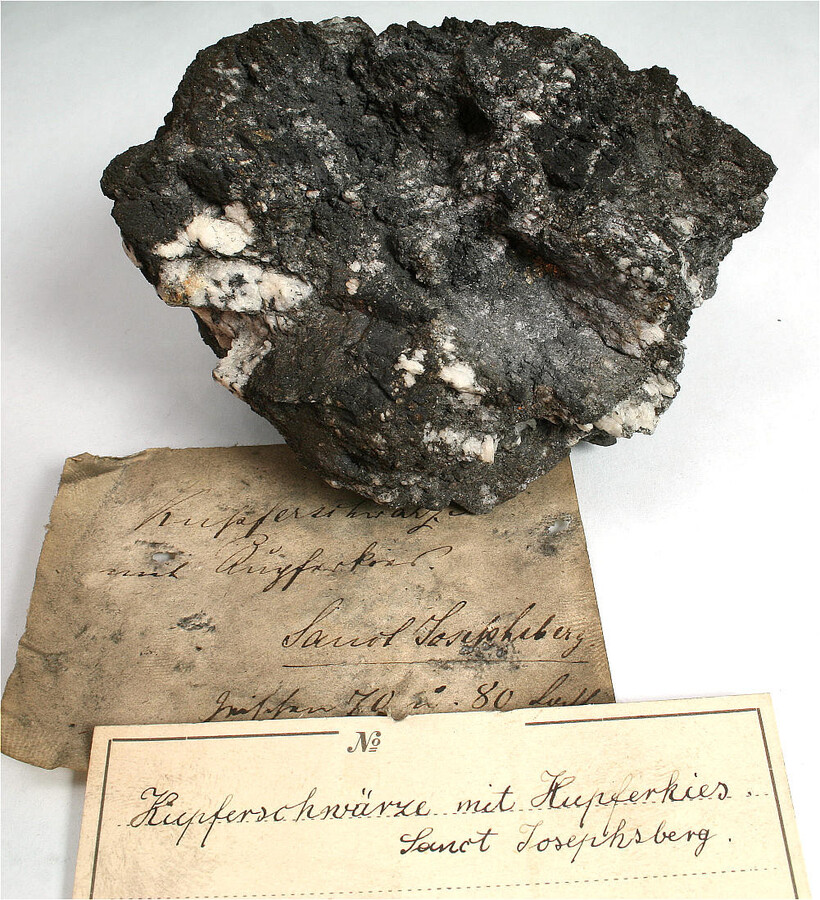 Kupferschwärze
mit Kupferkies.
Sanct Josephsberg.
zwischen 70 u. 80
No
Kupferschwärze mit Kupferkies.
Sanct Josephsberg.